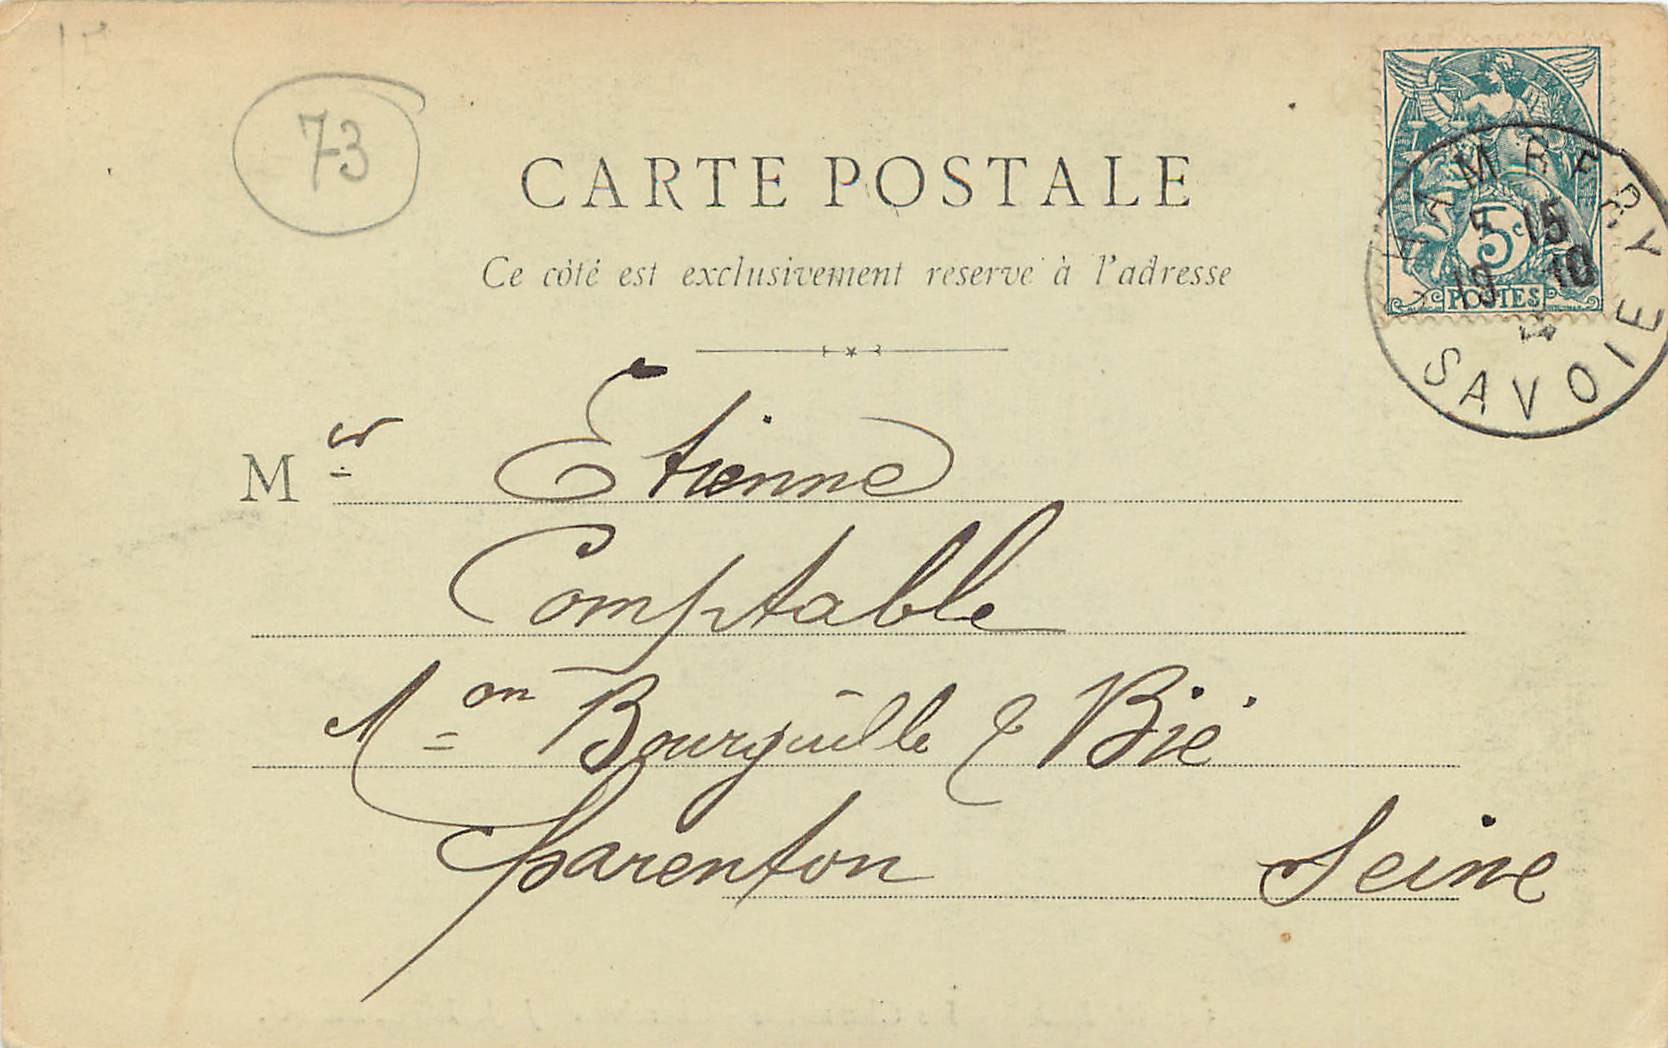 73
CARTE POSTALE
Ce côté est exclusivement reservé à l'adresse
5c
POSTES
CHAMBERY
5 15
19 10
SAVOIE
Mr Etienne
Comptable
Mon Bourguille & Bié
Charenton Seine